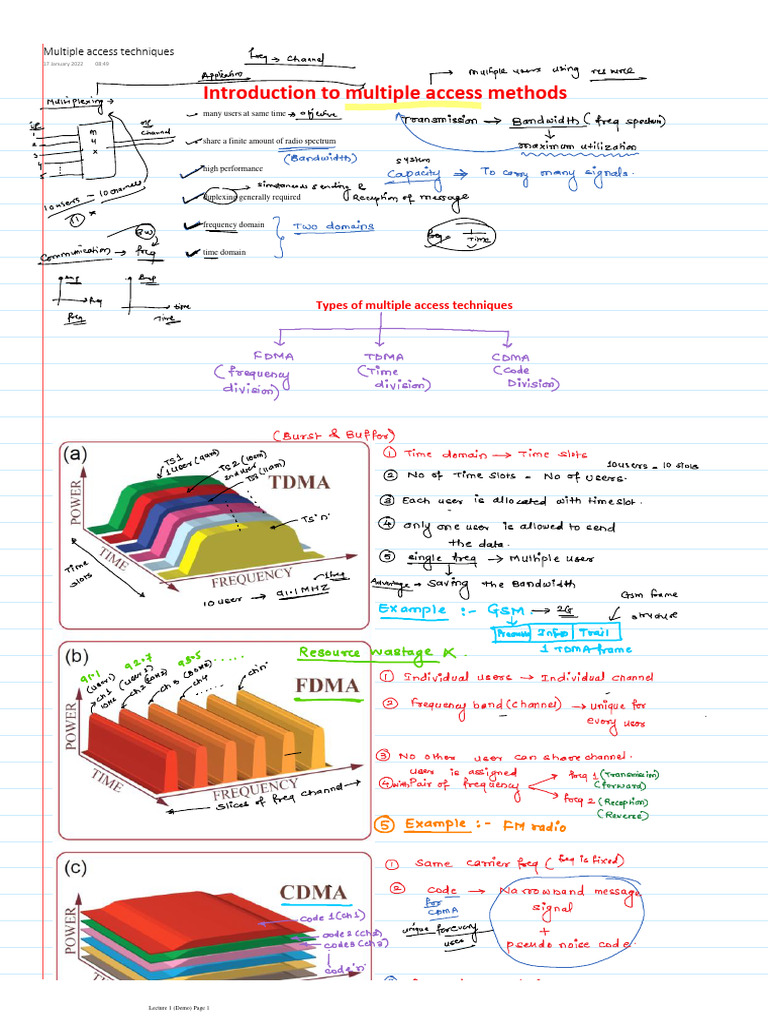 Multiple access techniques
17 January 2022 08:49
freq → channel
Application
multiple users using resource
Introduction to multiple access methods
Multiplexing →
many users at same time → objective
share a finite amount of radio spectrum
(Bandwidth)
high performance
simultaneous sending &
duplexing generally required
Reception of message
frequency domain
time domain
Two domains
Transmission → Bandwidth (freq spectrum)
maximum utilization
system
Capacity → To carry many signals.
freq = 1/Time
i/p
1
2
3
4
5
M
U
X
channel
10 users - 10 channels
①
BW
Communication → freq
amp
freq
freq
Amp
time
Time
Types of multiple access techniques
FDMA
(frequency
division)
TDMA
(Time
division)
CDMA
(Code
Division)
(Burst & Buffer)
(a)
TDMA
POWER
TIME
FREQUENCY
TS1
1 user (9am)
TS2 (10am)
2nd user
TS3 (11am)
TS 'n'
Time
slots
10 user → 91.1 MHZ
1 freq
① Time domain → Time slots
10 users - 10 slots
② No of Time slots - No of users.
③ Each user is allocated with time slot.
④ only one user is allowed to send
the data.
⑤ single freq → Multiple user
Advantage → saving the Bandwidth
Example :- GSM → 2G
GSM frame
structure
Info Trail
1 TDMA frame
(b)
Resource wastage
FDMA
POWER
TIME
FREQUENCY
91.1 92.7 93.5 ......
(user1)
ch1
10Hz
(user2)
ch2
ch3
ch4
......
ch'n'
slices of freq channel
① Individual users → Individual channel
② Frequency band (channel) → unique for
every user
③ No other user can share channel.
④ user is assigned
with Pair of frequency
freq 1 (Transmission)
(Forward)
freq 2 (Reception)
(Reverse)
⑤ Example :- FM radio
(c)
CDMA
POWER
code 1 (ch1)
code 2 (ch2)
code 3 (ch3)
code 'n'
① Same carrier freq (freq is fixed)
② code → Narrowband message
signal
+
pseudo noise code.
for
CDMA
unique for every
user
Lecture 1 (Demo) Page 1